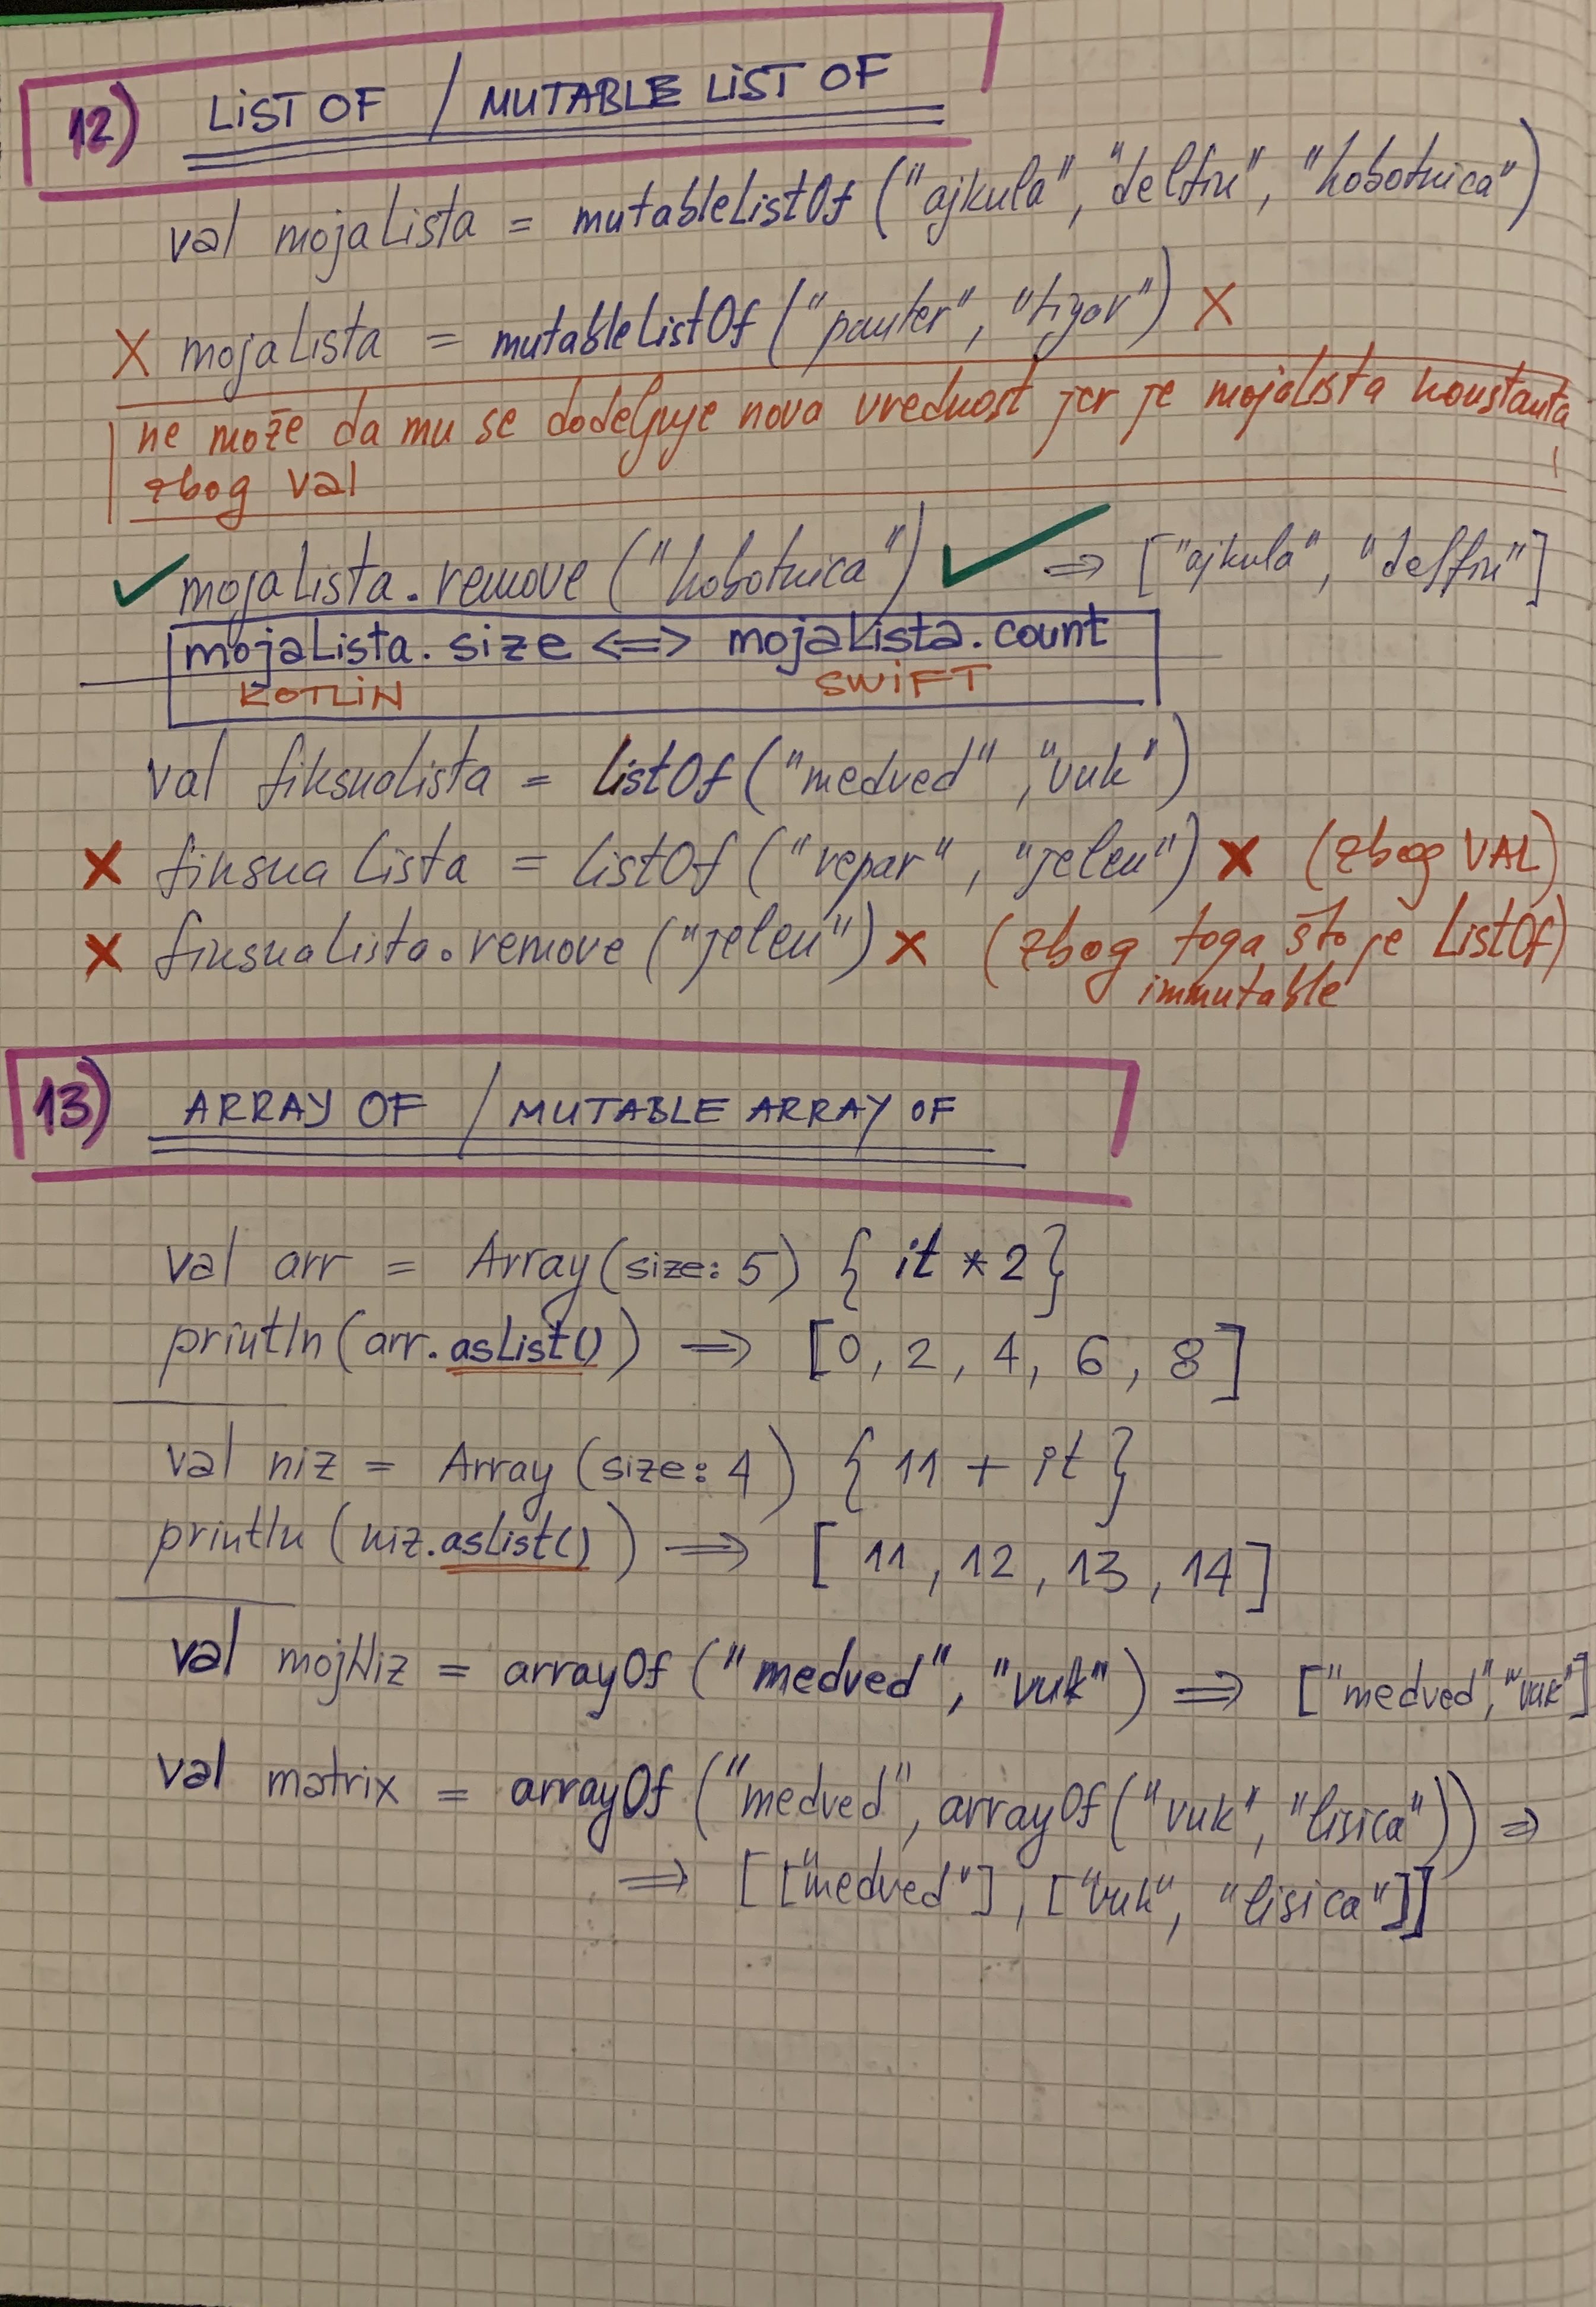 12) LIST OF / MUTABLE LIST OF
val mojaLista = mutableListOf ("ajkula", "delfin", "hobotnica")
X mojaLista = mutableListOf ("panter", "tigar") X
ne može da mu se dodeljuje nova vrednost jer je mojaLista konstanta
zbog val !
✓ mojaLista.remove ("hobotnica") ✓ => ["ajkula", "delfin"]
mojaLista.size <=> mojaLista.count
KOTLIN SWIFT
val fiksnaLista = listOf ("medved", "vuk")
X fiksnaLista = listOf ("vepar", "jelen") X (zbog VAL)
X fiksnaLista.remove ("jelen") X (zbog toga što je ListOf)
immutable
13) ARRAY OF / MUTABLE ARRAY OF
val arr = Array (size: 5) { it * 2 }
println (arr.asList()) => [0, 2, 4, 6, 8]
val niz = Array (size: 4) { 11 + it }
println (niz.asList()) => [ 11, 12, 13, 14 ]
val mojNiz = arrayOf ("medved", "vuk") => ["medved", "vuk"]
val matrix = arrayOf ("medved", arrayOf ("vuk", "lisica")) =>
=> [["medved"], ["vuk", "lisica"]]